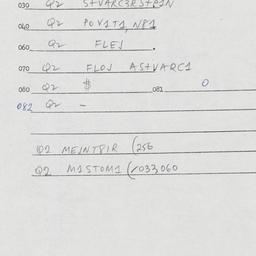 030 Q2 S+VARC3RS+P1N
040 Q2 POV1T1, N81
060 Q2 FLEJ .
070 Q2 FLOJ AS+VARC1
080 Q2 $ 081 0
082 Q2 -
Q2 MEINT8IR (256
Q2 M1STOM1 (1033,060